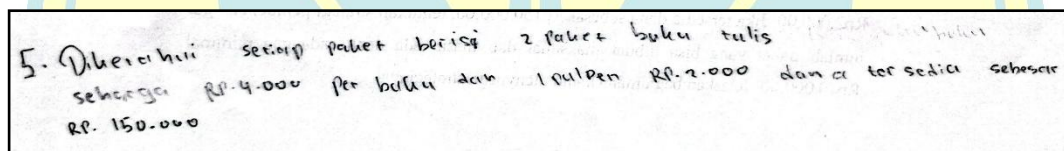 5. Dikerahui setiap paket berisi 2 paket buku tulis
seharga RP.4.000 Per buku dan 1 pulpen RP.2.000 dana tersedia sebesar
RP. 150.000